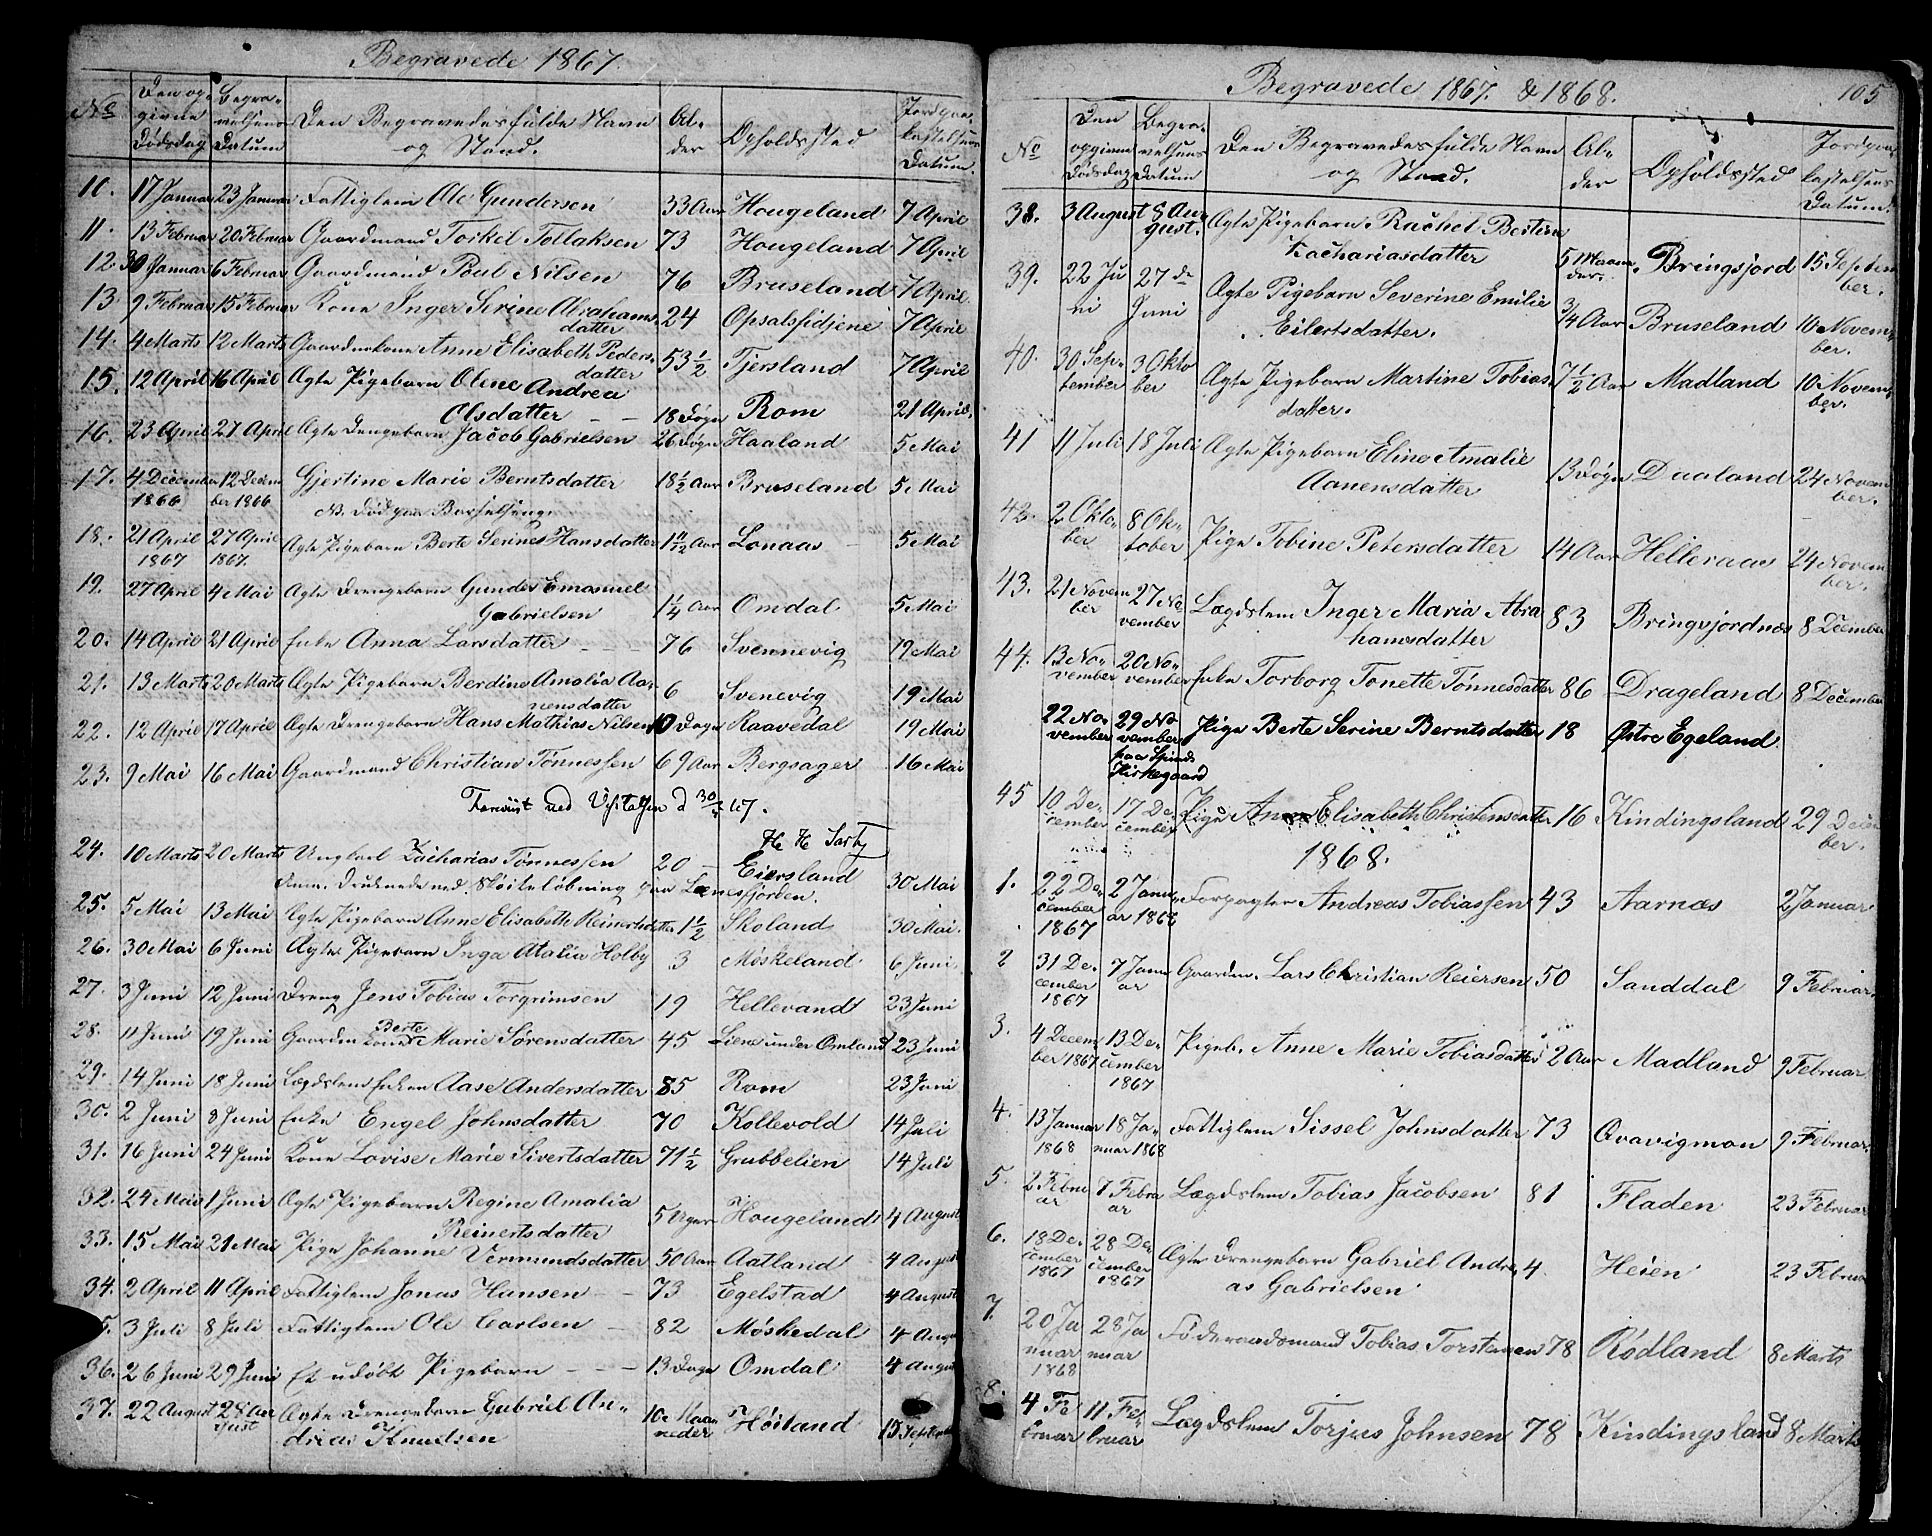 Begravede 1867.
No Den opgivne Dødsdag Begravelsens Datum Den Begravedes fulde Navn og Stand. Alder Opholdssted Jordpaakastelsens Datum.
10. 17 Januar 23 Januar Fattiglem Ole Gundersen 33 Aar Hougeland 7 April
11. 13 Februar 20 Februar Gaardmand Torkel Tollaksen 73 Hougeland 7 April
12. 30 Januar 6 Februar Gaardmand Poul Nilsen 76 Bruseland 7 April
13 9 Februar 15 Februar Kone Inger Serine Abrahams
datter 24 Opsalsfidjene 7 April
14. 4 Marts 12 Marts Gaardmkone Anne Elisabeth Peders
datter 53 1/2 Tjersland 7 April
15. 12 April 16 April Ægte Pigebarn Olene Andrea
Olsdatter 18 Døgn Rom 21 April.
16. 23 April 27 April Ægte Drengebarn Jacob Gabrielsen 26 Døgn Haaland 5 Mai
17. 4 December 1866 12 December 1866 Gjertine Marie Berntsdatter 18 1/2 Aar Bruseland 5 Mai
NB. Død paa Barselseng.
18. 21 April 1867 27 April 1867. Ægte Pigebarn Berte Serine Hansdatter 1 11/12 Aar Lonaas 5 Mai
19. 27 April 4 Mai Ægte Drengebarn Gunder Emanuel
Gabrielsen 1 1/4 Aar Omdal 5 Mai
20. 14 April 21 April Enke Anna Larsdatter 76 Svennevig 19 Mai
21. 13 Marts 20 Marts Ægte Pigebarn Berdine Amalia Aa-
nensdatter 6 Svenevig 19 Mai
22. 12 April 17 April Ægte Drengebarn Hans Mathias Nilsen 10 Dage Raavedal 19 Mai
23. 9 Mai 16 Mai Gaardmand Christian Tønnessen 69 Aar Bergsager 16 Mai
ved d 30/5 67.
24. 10 Marts 20 Marts Ungkarl Zacharias Tønnessen 20 Eiersland 30 Mai
Anm. Druknede ved Skøiteløbning paa Lenesfjorden.
25. 5 Mai 13 Mai Ægte Pigebarn Anne Elisabeth Reinertsdatter 1 1/2 Skoland 30 Mai.
26. 30 Mai 6 Juni Ægte Pigebarn Inga Atalia Holby 3 Møskeland 6 Juni.
27. 3 Juni 12 Juni Dreng Jens Tobias Torgrimsen 19 Hellevand 23 Juni
28. 11 Juni 19 Juni Gaardmkone Berte Marie Sørensdatter 45 Liene under Omland 23 Juni
29. 14 Juni 18 Juni Lægdslem Enken Aase Andersdatter 85 Rom 23 Juni
30. 2 Juni 8 Juni Enke Engel Johnsdatter 70 Kollevold 14 Juli
31. 16 Juni 24 Juni Kone Lovise Marie Sivertsdatter 71 1/2 Grubbelien 14 Juli
32. 24 Mai 1 Juni Ægte Pigebarn Regine Amalia
Reinertsdatter 5 Uger Hougeland 4 August
33. 15 Mai 21 Mai Pige Johanne Vermundsdatter 50 Aar Aatland 4 August
34. 2 April 11 April Fattiglem Jonas Hansen 73 Egelstad 4 August
5. 3 Juli 8 Juli Fattiglem Ole Carlsen 82 Møskedal 4 Augu
36. 26 Juni 29 Juni Et udøbt Pigebarn 13 Dage Omdal 4 August
37. 22 August 28 August Ægte Drengebarn Gabriel An-
drias Knudsen 10 Maaneder Høiland 15 September
Begravede 1867. & 1868. 105
No Den opgivne Dødsdag Begravelsens Datum Den Begravedes fulde Navn og Stand. Alder Opholdssted Jordpaakastelsens Datum.
38. 3 August 8 August. Ægte Pigebarn Rachel Bestine
Zachariasdatter 5 Maaneder. Bringsjord 15 September.
39. 22 Juni 27de Juni Ægte Pigebarn Severine Emilie
Eilertsdatter. 3/4 Aar Bruseland 10 November.
40. 30 September 3 Oktober Ægte Pigebarn Martine Tobias
datter. 7 1/2 Aar Madland 10 November.
41 11 Juli 18 Juli Ægte Pigebarn Eline Amalie
Aanensdatter 13 Døgn Daaland 24 November.
42. 2 Oktober 8 Oktober Pige Tobine Petersdatter 14 Aar Helleraas 24 November.
43. 21 November 27 November Lægdslem Inger Maria Abra
hamsdatter 83 Bringsjordnes 8 December
44. 13 November 20 November Enke Torborg Tonette Tønnesdatter 86 Drageland 8 December
22 November 29 November paa Spinds Kirkegaard Pige Berte Serine Berntsdatter 18 Østre Egeland.
45 10 December 17 December Pige Anne Elisabeth Christensdatter 16 Kindingsland 29 December.
1868.
1. 22 December 1867 2 Januar 1868 Forpagter Andreas Tobiassen 43 Aarnæs 2 Januar
2 31 December 1867 7 Januar Gaardm. Lars Christian Reiersen 50 Sanddal 9 Februar.
3. 4 December 1867 13 December 1867 Pigeb. Anne Marie Tobiasdatter 2 Aar Madland 9 Februar
4. 13 Januar 1868 18 Januar 1868 Fattiglem Sissel Johnsdatter 73 Qvavigmon 9 Februar.
5. 2 Februar 7 Februar Lægdslem Tobias Jacobsen 81 Fladen 23 Februar
6. 18 December 1867 28 December 1867 Ægte Drengebarn Gabriel Andre
as Gabrielsen 4. Heien 23 Februar
7. 20 Januar 1868 28 Januar Føderaadsmand Tobias Torstensen 78 Rødland 8 Marts
8. 4 Februar 11 Februar Lægdslem Torjus Johnsen 78 Kindingsland 8 Marts